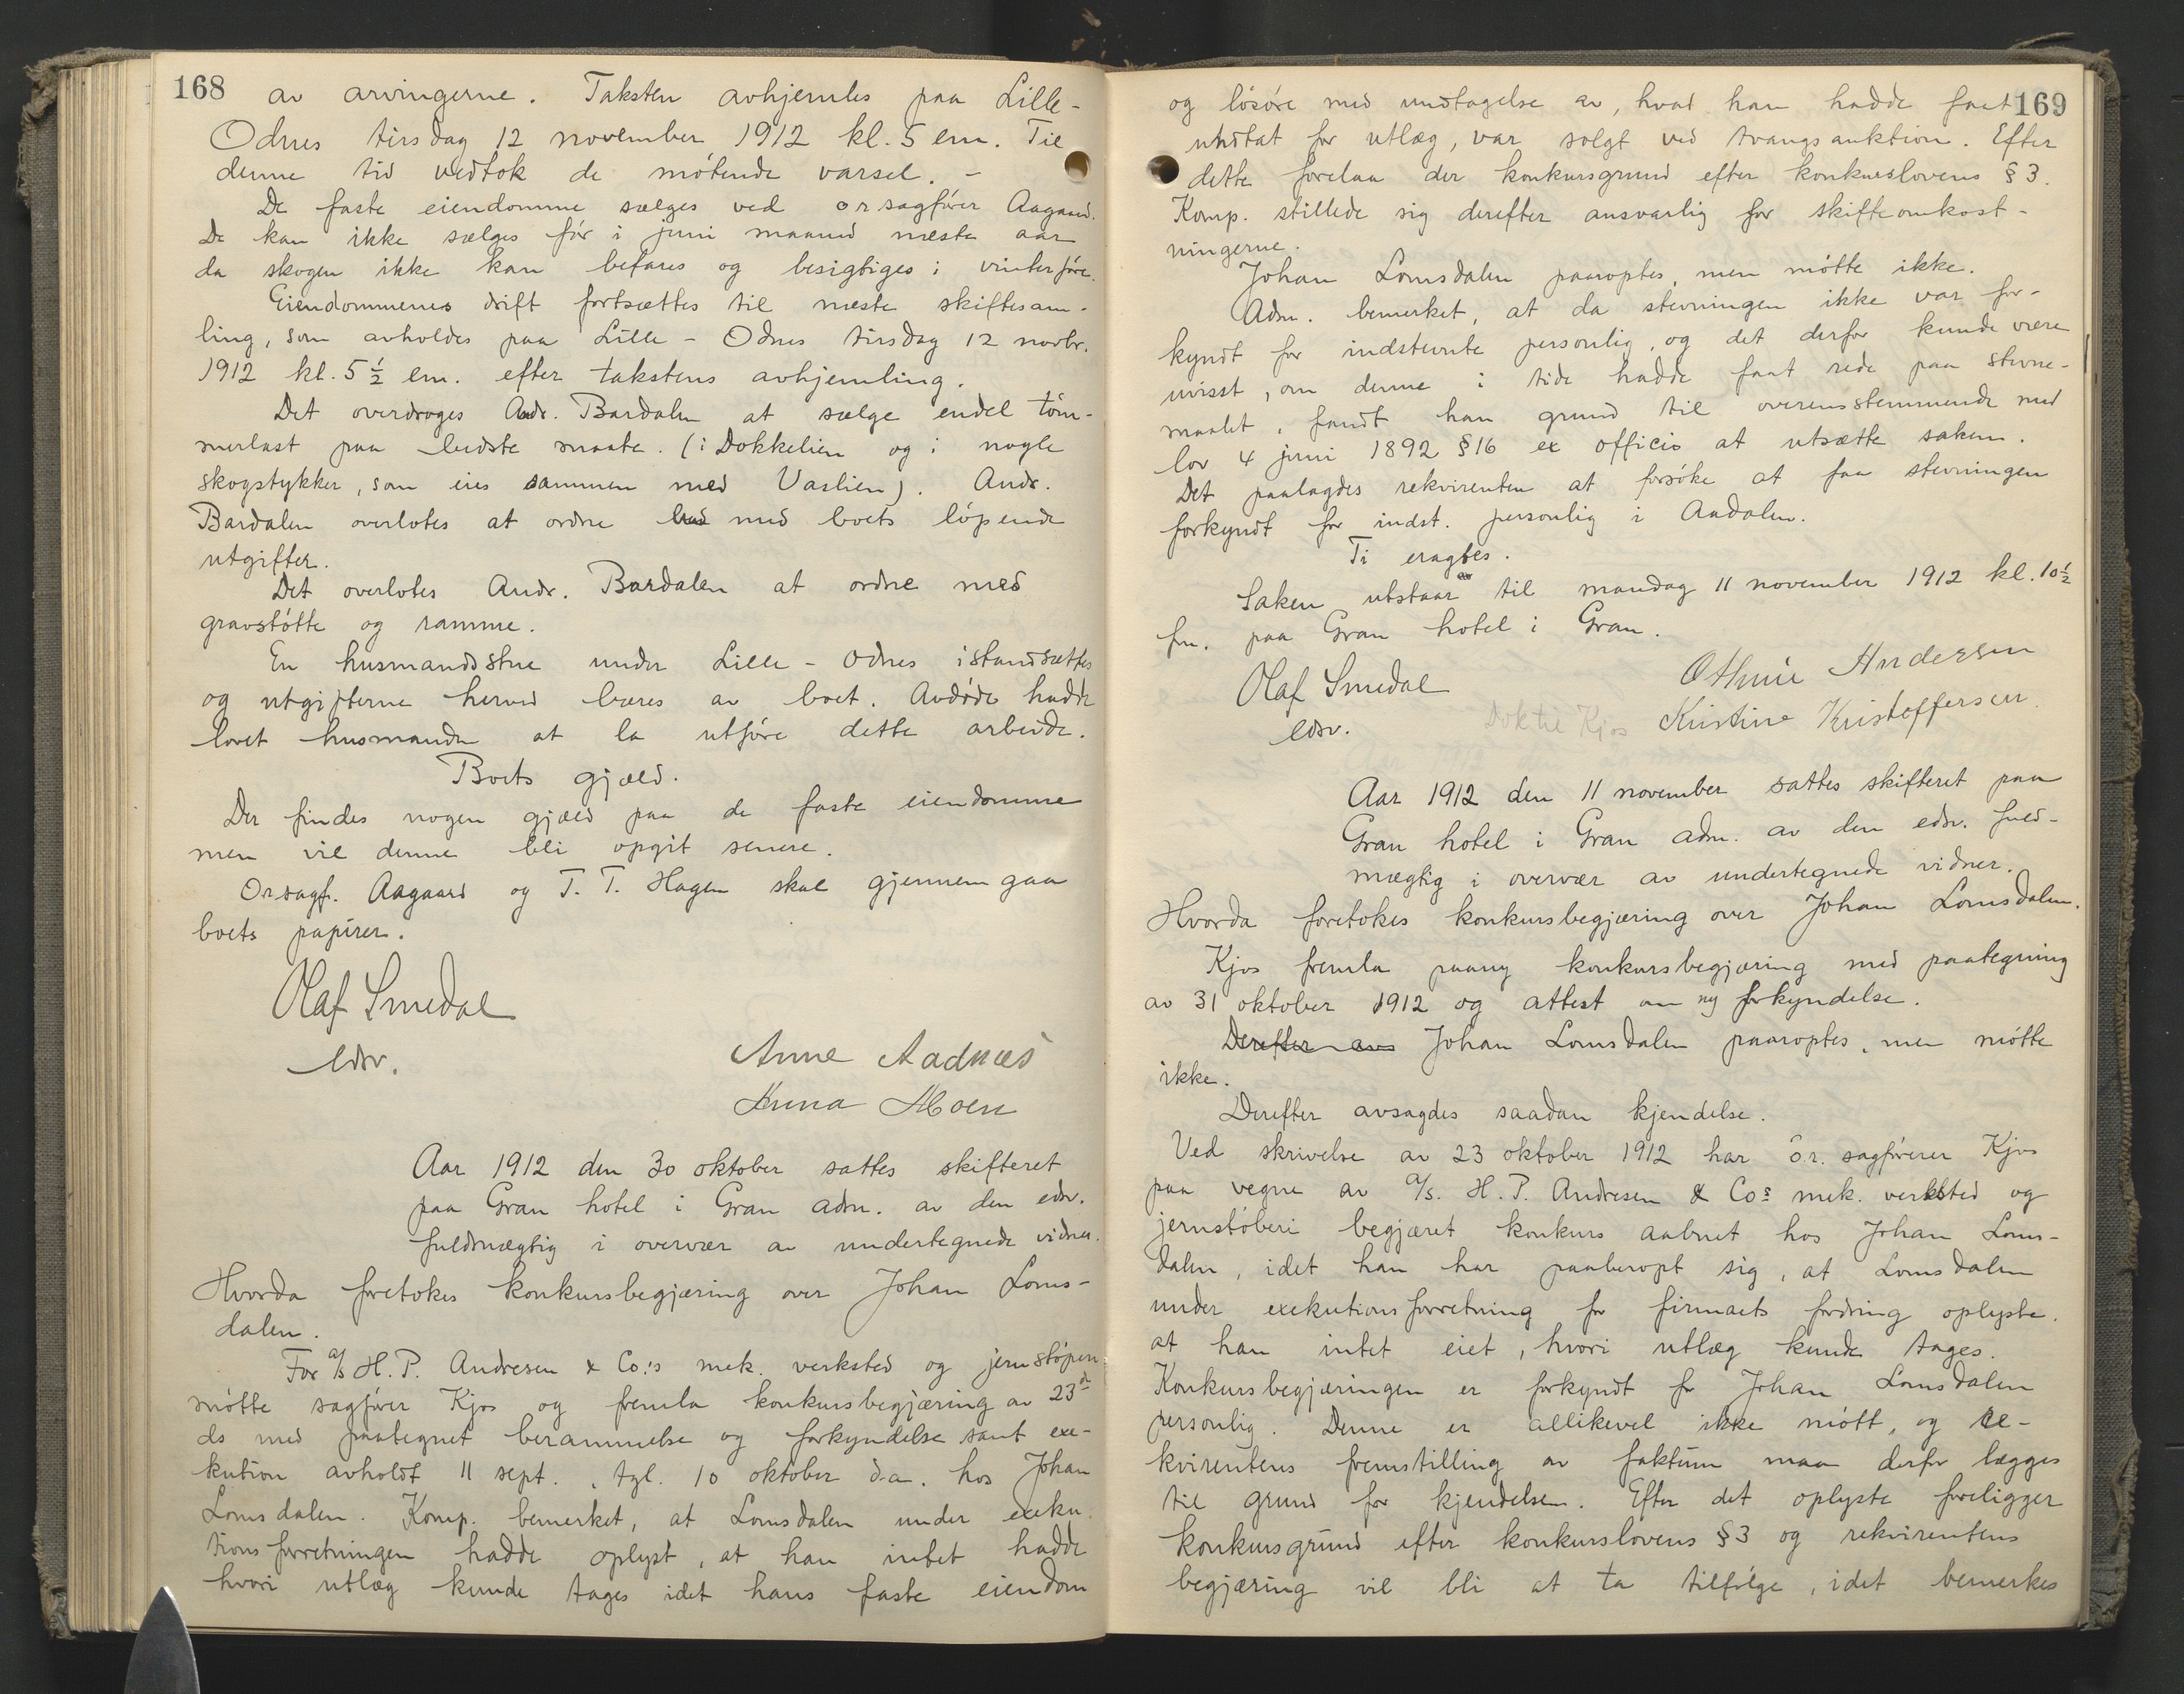 168
av arvingerne. Taksten avhjemles paa Lille-
Odnes tirsdag 12 november 1912 kl. 5 em. Til
denne tid vedtok de møtende varsel. -
De faste eiendomme sælges ved orsagfører Aagaard.
De kan ikke sælges før i juni maaned næste aar
da skogen ikke kan befares og besigtiges i vinterføre.
Eiendommenes drift fortsættes til næste skiftesam-
ling, som avholdes paa Lille-Odnes tirsdag 12 novbr.
1912 kl. 5½ em. efter takstens avhjemling.
Det overdroges Andr. Bardalen at sælge endel tøm-
merlast paa bedste maate. (i Dokkelien og i nogle
skogstykker, som eies sammen med Vaslien). Andr.
Bardalen overlotes at ordne med boets løpende
utgifter.
Det overlotes Andr. Bardalen at ordne med
gravstøtte og ramme.
En husmandsstue under Lille-Odnes istandsættes
og utgifterne herved bæres av boet. Avdøde hadde
lovet husmanden at la utføre dette arbeide.
Boets gjæld.
Der findes nogen gjæld paa de faste eiendomme
men vil denne bli opgit senere.
Orsagf. Aagaard og T. T. Hagen skal gjennemgaa
boets papirer.
Olaf Smedal
edsv.
Anne Aadnæs
Anna Moen
Aar 1912 den 30 oktober sattes skifteret
paa Gran hotel i Gran adm. av den edsv.
fuldmægtig i overvær av undertegnede vidner.
Hvorda foretokes konkursbegjæring over Johan Loms-
dalen.
For a/s H. P. Andresen & Co.'s mek. verksted og jernstøperi
møtte sagfører Kjos og fremla konkursbegjæring av 23de
ds med paategnet berammelse og forkyndelse samt exe-
kution avholdt 11 sept., tgl. 10 oktober d.a. hos Johan
Lomsdalen. Komp. bemerket, at Lomsdalen under exeku-
tionsforretningen hadde oplyst, at han intet hadde
hvori utlæg kunde tages idet hans faste eiendom
169
og løsøre med undtagelse av, hvad han hadde faat
undtat for utlæg, var solgt ved tvangsauktion. Efter
dette forelaa der konkursgrund efter konkurslovens § 3.
Komp. stillede sig derefter ansvarlig for skifteomkost-
ningerne.
Johan Lomsdalen paaroptes, men møtte ikke.
Adm. bemerket, at da stevningen ikke var for-
kyndt for indstevnte personlig, og det derfor kunde være
uvisst, om denne i tide hadde faat rede paa stevne-
maalet, fandt han grund til overensstemmende med
lov 4 juni 1892 § 16 ex officio at utsætte saken.
Det paalagdes rekvirenten at forsøke at faa stevningen
forkyndt for indst. personlig i Aadalen.
Ti eragtes.
Saken utstaar til mandag 11 november 1912 kl. 10½
fm. paa Gran hotel i Gran.
Olaf Smedal
edsv.
Othine Andersen
Doktil Kjos Kristine Kristoffersen.
Aar 1912 den 11 november sattes skifteret paa
Gran hotel i Gran adm. av den edsv. fuld-
mægtig i overvær av undertegnede vidner.
Hvorda foretokes konkursbegjæring over Johan Lomsdalen.
Kjos fremla paany konkursbegjæring med paategning
av 31 oktober 1912 og attest om ny forkyndelse.
Derefter avs Johan Lomsdalen paaroptes, men møtte
ikke.
Derefter avsagdes saadan kjendelse.
Ved skrivelse av 23 oktober 1912 har o.r. sagfører Kjos
paa vegne av a/s. H. P. Andresen & Cos mek. verksted og
jernstøberi begjæret konkurs aabnet hos Johan Loms-
dalen, idet han har paaberopt sig, at Lomsdalen
under exekutionsforretning for firmaets fordring oplyste.
at han intet eiet, hvori utlæg kunde tages.
Konkursbegjæringen er forkyndt for Johan Lomsdalen
personlig. Denne er allikevel ikke møtt, og re-
kvirentens fremstilling av faktum maa derfor lægges
til grund for kjendelsen. Efter det oplyste foreligger
konkursgrund efter konkurslovens § 3 og rekvirentens
begjæring vil bli at ta tilfølge, idet bemerkes